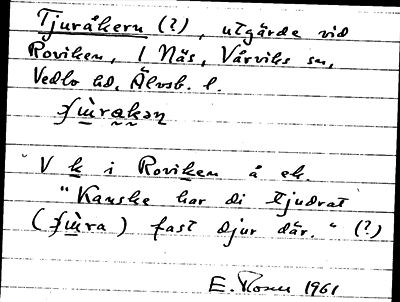 Tjuråkern (?), utgärde vid
Roviken, 1 Näs, Vårviks sn,
Vedbo hd. Älvsb. l.
V k i Roviken å ek.
"Kanske har di tjudrat
( ) fast djur där." (?)
E. Rosen 1961